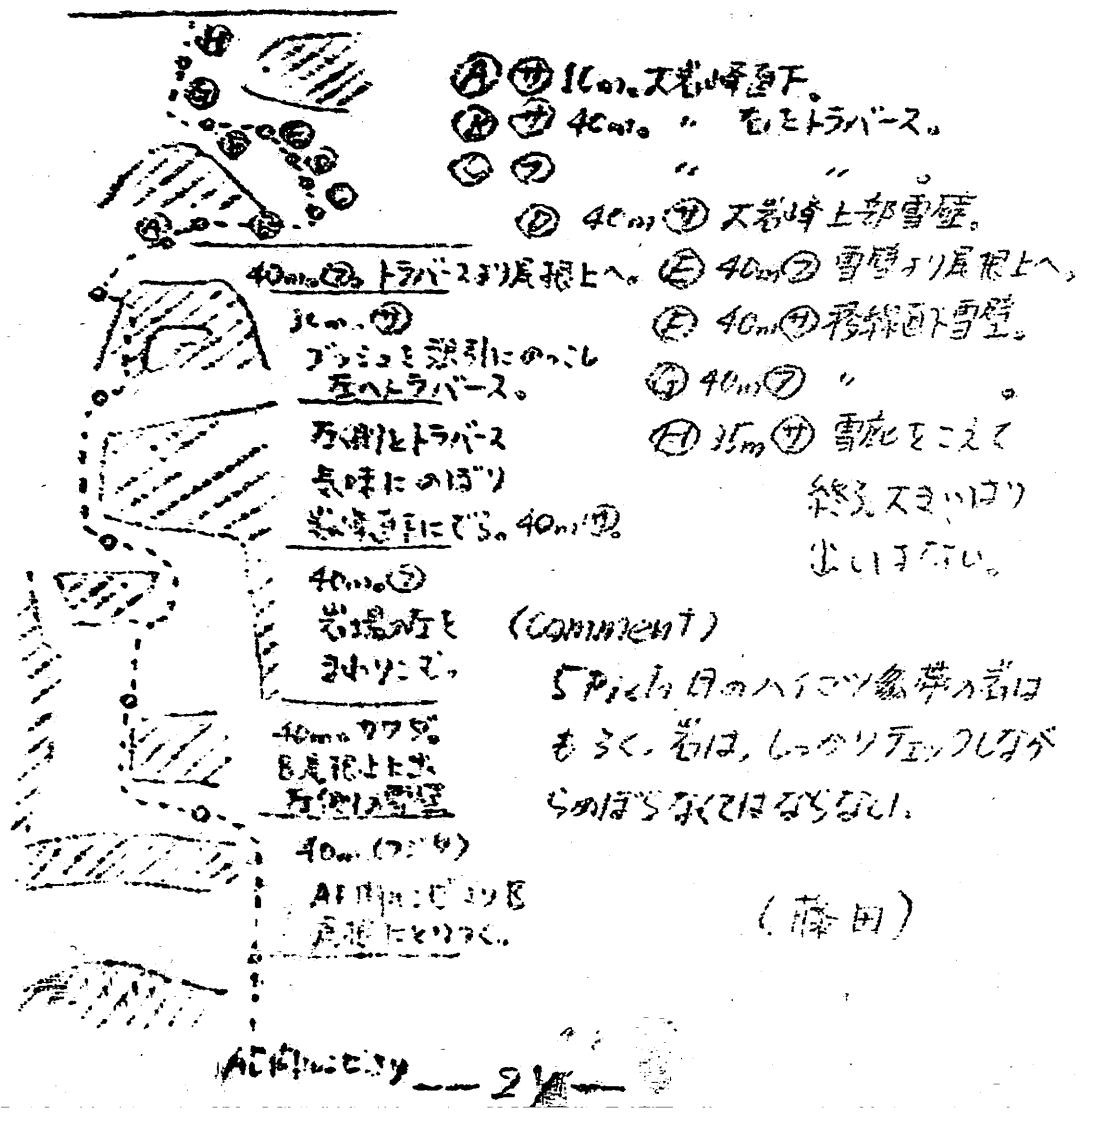 Ⓗ
Ⓖ
Ⓕ Ⓔ
Ⓓ
Ⓒ
Ⓐ Ⓑ
Ⓐ ㋚ 10m。大岩峰直下。
Ⓑ ㋚ 40m。 〃 右をトラバース。
Ⓒ ㋫ 〃 〃 。
Ⓓ 40m ㋚ 大岩峰上部雪壁。
Ⓔ 40m ㋫ 雪壁より尾根上へ。
Ⓕ 40m ㋚ 稜線直下雪壁。
Ⓖ 40m ㋫ 〃 。
Ⓗ 35m ㋚ 雪庇をこえて
終了 大きいはり
出しはない。
40m。㋫。トラバースより尾根上へ。
30m。㋚
ブッシュを強引にのっこし
左へトラバース。
左側をトラバース
気味にのぼり
岩峰直下にでる。40m ㋚。
40m。㋫
岩場の左を
まわりこむ。
40m。サワダ。
B尾根上に出
左側の雪壁
40m (フジタ)
尾根にとりつく。
(Comment)
5 Pitch 目のハイマツ 帯の岩は
もろく、岩は、しっかりチェックしなが
らのぼらなくてはならない。
(藤田)